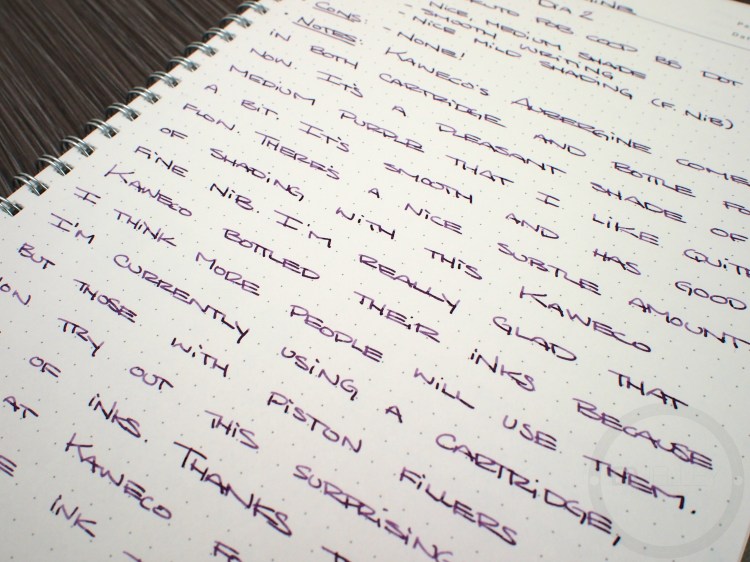 Dia 2
Nice, medium shade
- Smooth writing
- Nice mild shading (F. Nib)
Cons: - None!
Notes: Kaweco's Aubergine come
in both cartridge and bottle fo
now. It's a pleasant shade of
medium purple that I like quit
a bit. It's smooth and has good
flow. There's a nice subtle amount
of shading, with this Kaweco
fine nib. I'm really glad that
Kaweco bottled their inks because
I think more people will use them.
I'm currently using a cartridge,
but those with piston fillers
try out this surprising
of inks. Thanks
at Kaweco fo
ink